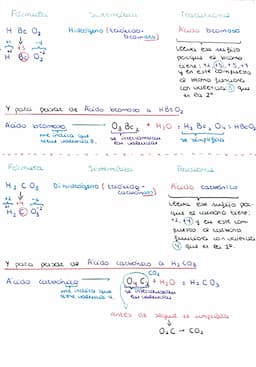 Fórmula Sistemática Tradicional
H Br O₂ Hidrógeno (trioxido- Ácido bromoso
bromato)
+1 +3 -2
H Br O₂
lleva ese sufijo
porque el bromo
tiene: +1, +3, +5, +7
y en este compuesto
el bromo funciona
con valencia 3 que
es la 2ª
Y para pasar de Ácido bromoso a HBrO₂
Ácido bromoso → O₃Br₂ + H₂O = H₂Br₂O₄ = HBrO₂
me indica que
tiene valencia 3.
se intercambian
las valencias
se simplifica
Fórmula Sistemática Tradicional
H₂ C O₃ Dihidrógeno (trióxido- Ácido carbónico
carbonato)
+2 +4 -6
H₂ C O₃
lleva ese sufijo por-
que el carbono tiene:
+2, +4 y en este com-
puesto el carbono
funciona con valencia
4 que es la 2ª.
Y para pasar de Ácido carbónico a H₂CO₃
CO₂
Ácido carbónico → O₄C₂ + H₂O = H₂CO₃
me indica que
tiene valencia 4.
se intercambian
las valencias
antes de seguir se simplifica
O₂C → CO₂